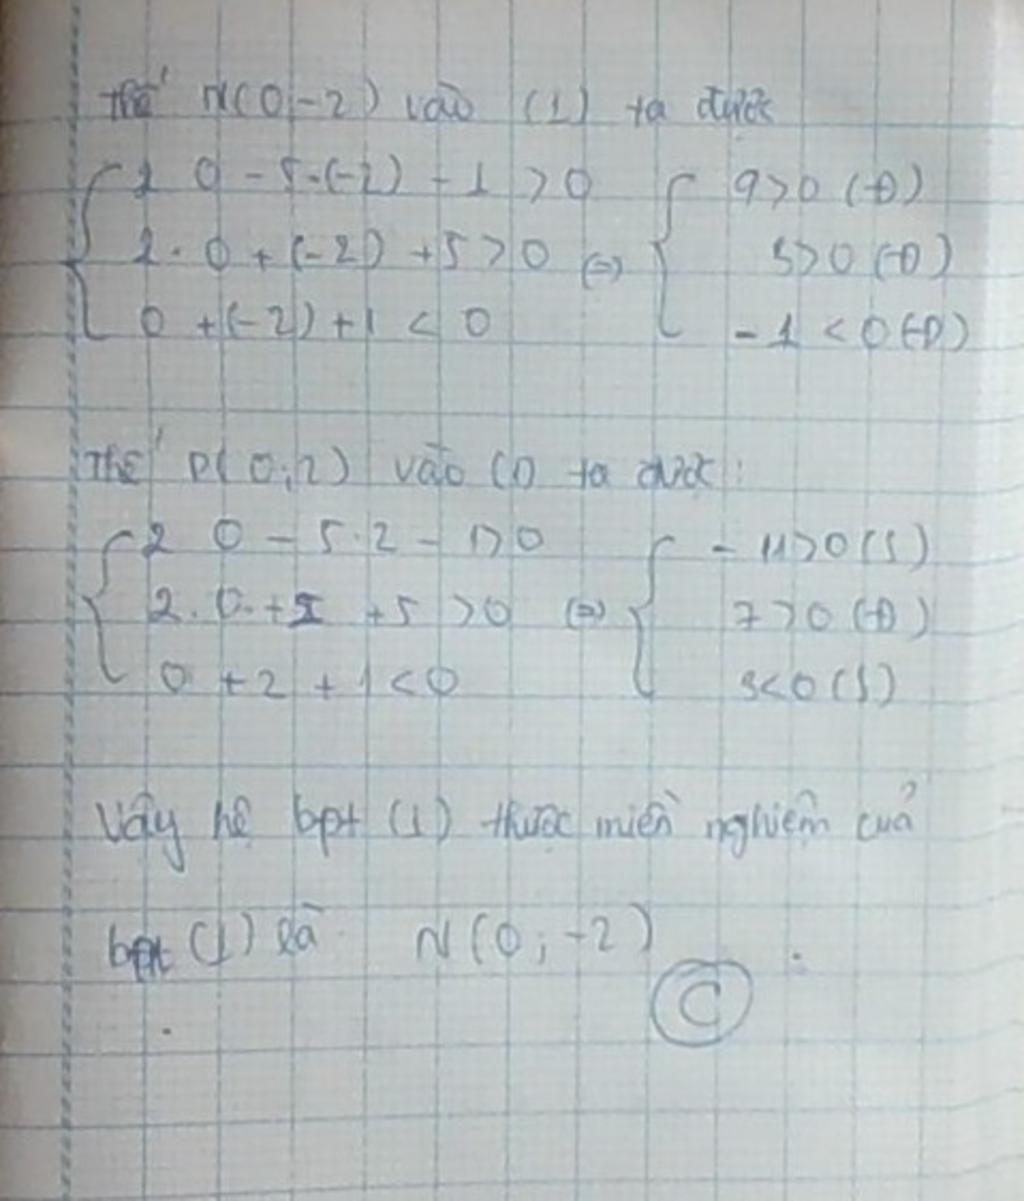 Thế N(0;-2) vào (1) ta được
{ 2 0 - 5.(-2) - 1 > 0
2. 0 + (-2) + 5 > 0 (=) {
0 + (-2) + 1 < 0
9 > 0 (Đ)
3 > 0 (Đ)
- 1 < 0 (Đ)
Thế P(0;2) vào (1) ta được:
{ 2 0 - 5.2 - 1 > 0
2. 0 + 2 + 5 > 0 (=) {
0 + 2 + 1 < 0
- 11 > 0 (S)
7 > 0 (Đ)
3 < 0 (S)
Vậy hệ bpt (1) thuộc miền nghiệm của
bpt (1) là N(0; -2)
C